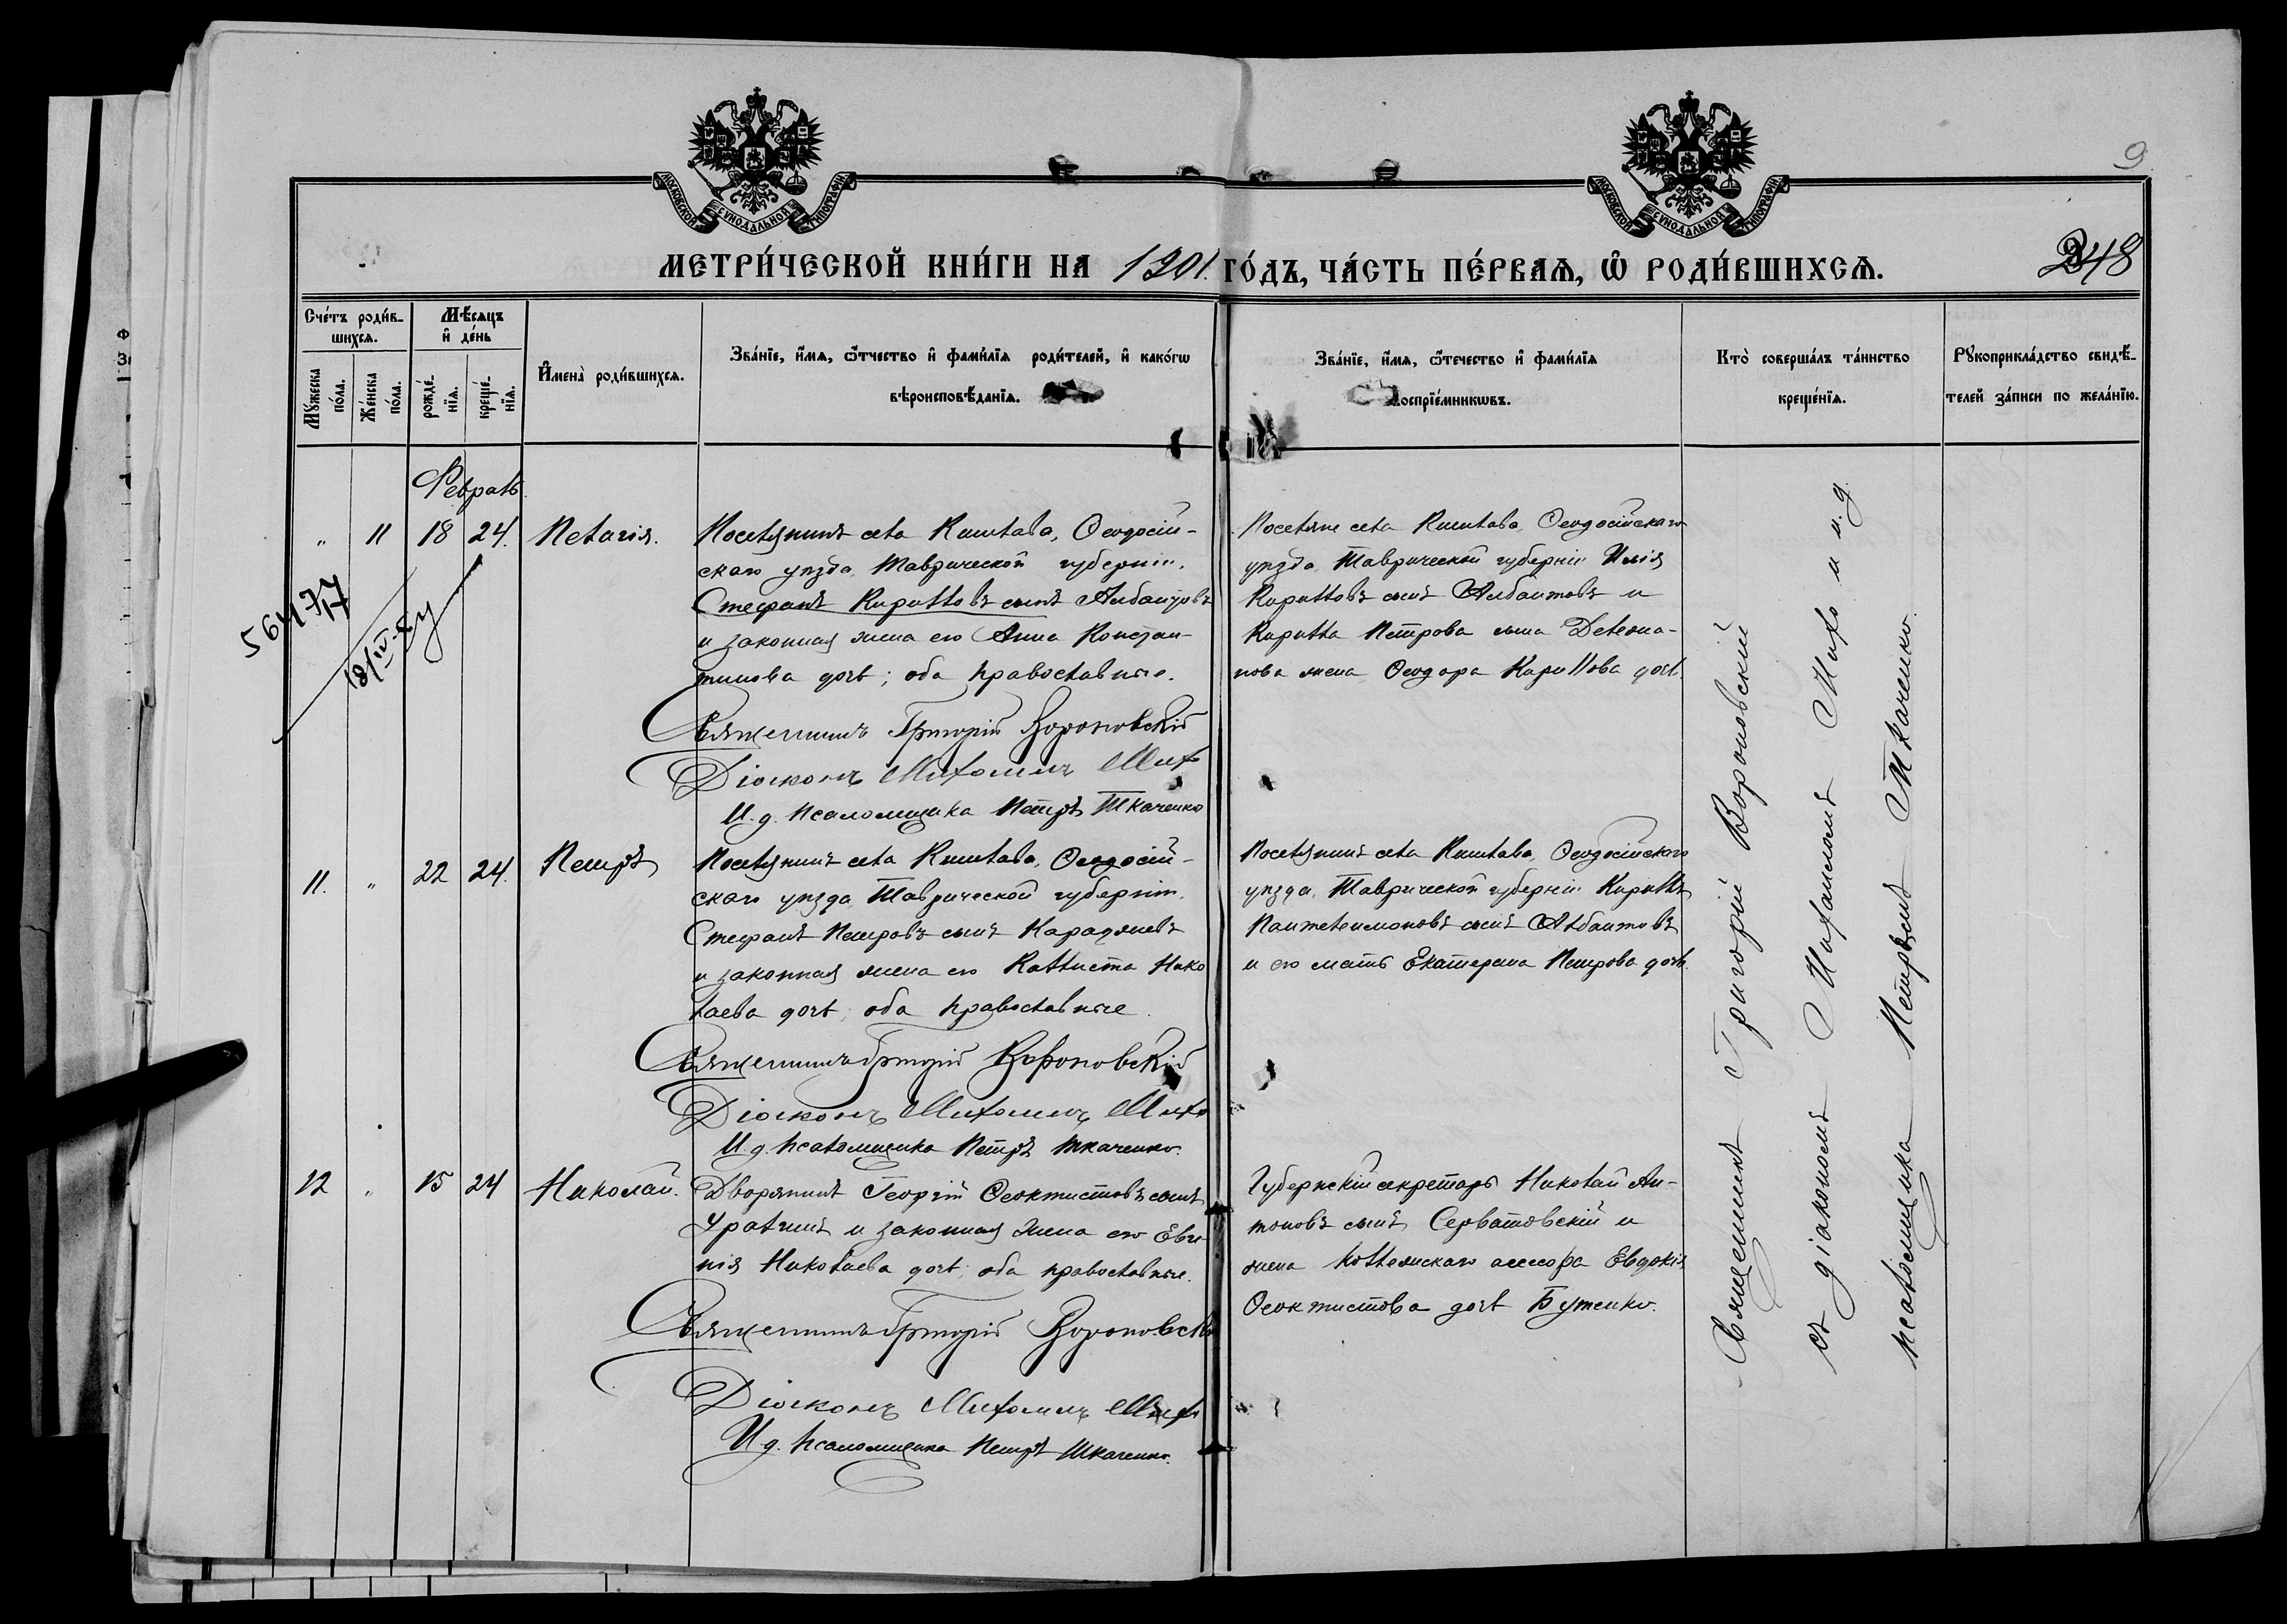 МОСКОВСКОЙ СѴНОДАЛЬНОЙ ТИПОГРАФІИ
МОСКОВСКОЙ СѴНОДАЛЬНОЙ ТИПОГРАФІИ
9
МЕТРИ́ЧЕСКОЙ КНИ́ГИ НА 1901. ГО́ДЪ, ЧА́СТЬ ПЕ́РВАЯ, Ѽ РОДИ́ВШИХСЯ.
248
Сче́тъ роди́в-
шихся.
Мꙋжеска по́ла.
Же́нска по́ла.
Мѣсяцъ
и де́нь
рожде́-
нїя.
креще́-
нїя.
Имена̀ роди́вшихся.
Зва́нїе, и́мя, ѿчество и фами́лїя роди́телей, и како́гѡ
вѣроисповѣданїя.
Зва́нїе, и́мя, ѿечество и фами́лїя
Воспрїе́мникѡвъ.
Кто̀ соверша́лъ та́инство
креще́нїя.
Рꙋкоприкла́дство свидѣ-
телей за́писи по жела́нїю.
Февраль
" 11 18 24. Пелагія.
Поселянинъ села Кишлава, Ѳеодосій-
скаго уѣзда, Таврической губерніи,
Стефанъ Кирилловъ сынъ Албантовъ
и законная жена его Анна Констан-
тинова дочь; оба православные.
Священникъ Григорій Вороновскій
Діаконъ Михаилъ Михо
И. д. псаломщика Петръ Ткаченко
Поселяне села Кишлава, Ѳеодосійскаго
уѣзда, Таврической губерніи Илія
Кирилловъ сынъ Албантовъ и
Кирилла Петрова сына
нова жена Ѳеодора Кириллова дочь.
18/IV
11. " 22 24. Петръ
Поселянинъ села Кишлава, Ѳеодосій-
скаго уѣзда Таврической губерніи.
Стефанъ Петровъ сынъ Караджевъ
и законная жена его Каллиста Нико
лаева дочь, оба православные.
Священникъ Григорій Вороновскій
Діаконъ Михаилъ Михо
И. д. псаломщика Петръ Ткаченко.
Поселянинъ села Кишлава, Ѳеодосійскаго
уѣзда, Таврической губерніи Кириллъ
Пантелеимоновъ сынъ Албантовъ
и его мать Екатерина Петрова дочь.
12 " 15 24 Николай.
Дворянинъ Георгій Ѳеоктистовъ сынъ
и законная жена его Евге
нія Николаева дочь, оба православные.
Священникъ Григорій Вороновскій
Діаконъ Михаилъ Михо
И. д. псаломщика Петръ Ткаченко.
Губернскій секретарь Николай Ан-
тоновъ сынъ Серватовскій и
жена коллежскаго асессора Евдокія
Ѳеоктистова дочь Бутенко.
Священникъ Григорій Вороновскій
съ діакономъ Михаиломъ Михо и и. д.
псаломщика Петромъ Ткаченко.